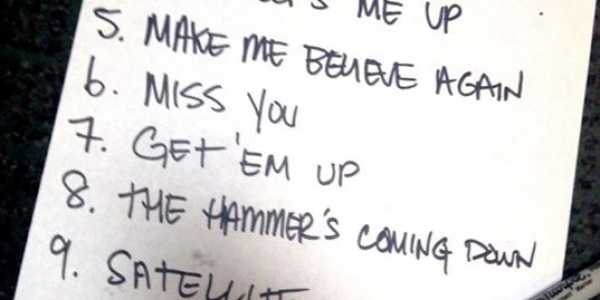 ME UP
5. MAKE ME BELIEVE AGAIN
6. MISS YOU
7. GET 'EM UP
8. THE HAMMER'S COMING DOWN
9. SATELLITE